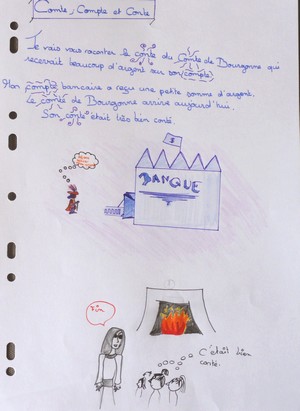 Comte, Compte et Conte
Je vais vous raconter le conte du Comte de Bourgogne qui
recevait beaucoup d'argent sur son compte.
Mon compte bancaire a reçu une petite somme d'argent.
Le comte de Bourgogne arrive aujourd'hui.
Son conte était très bien conté
$
BANQUE
Fin
C'était bien
conté.